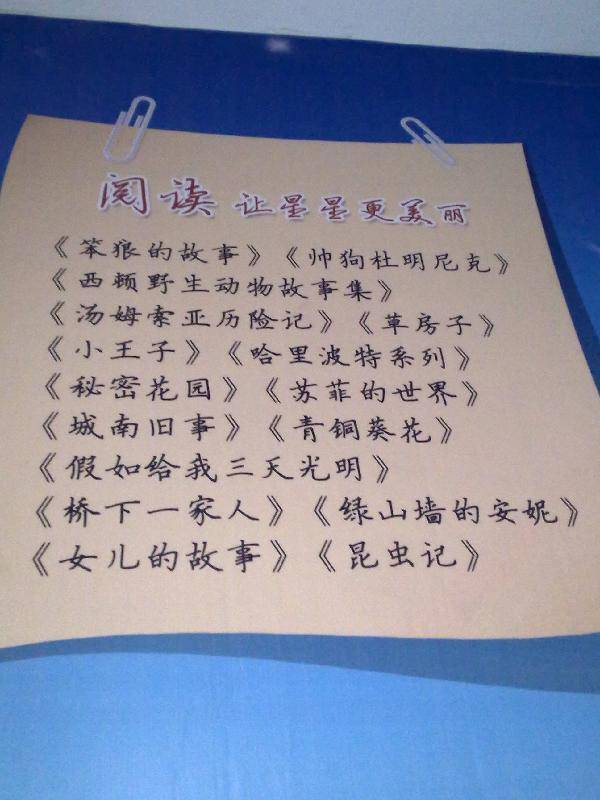 阅读 让星星更美丽
《笨狼的故事》《帅狗杜明尼克》
《西顿野生动物故事集》
《汤姆索亚历险记》《草房子》
《小王子》《哈里波特系列》
《秘密花园》《苏菲的世界》
《城南旧事》《青铜葵花》
《假如给我三天光明》
《桥下一家人》《绿山墙的安妮》
《女儿的故事》《昆虫记》